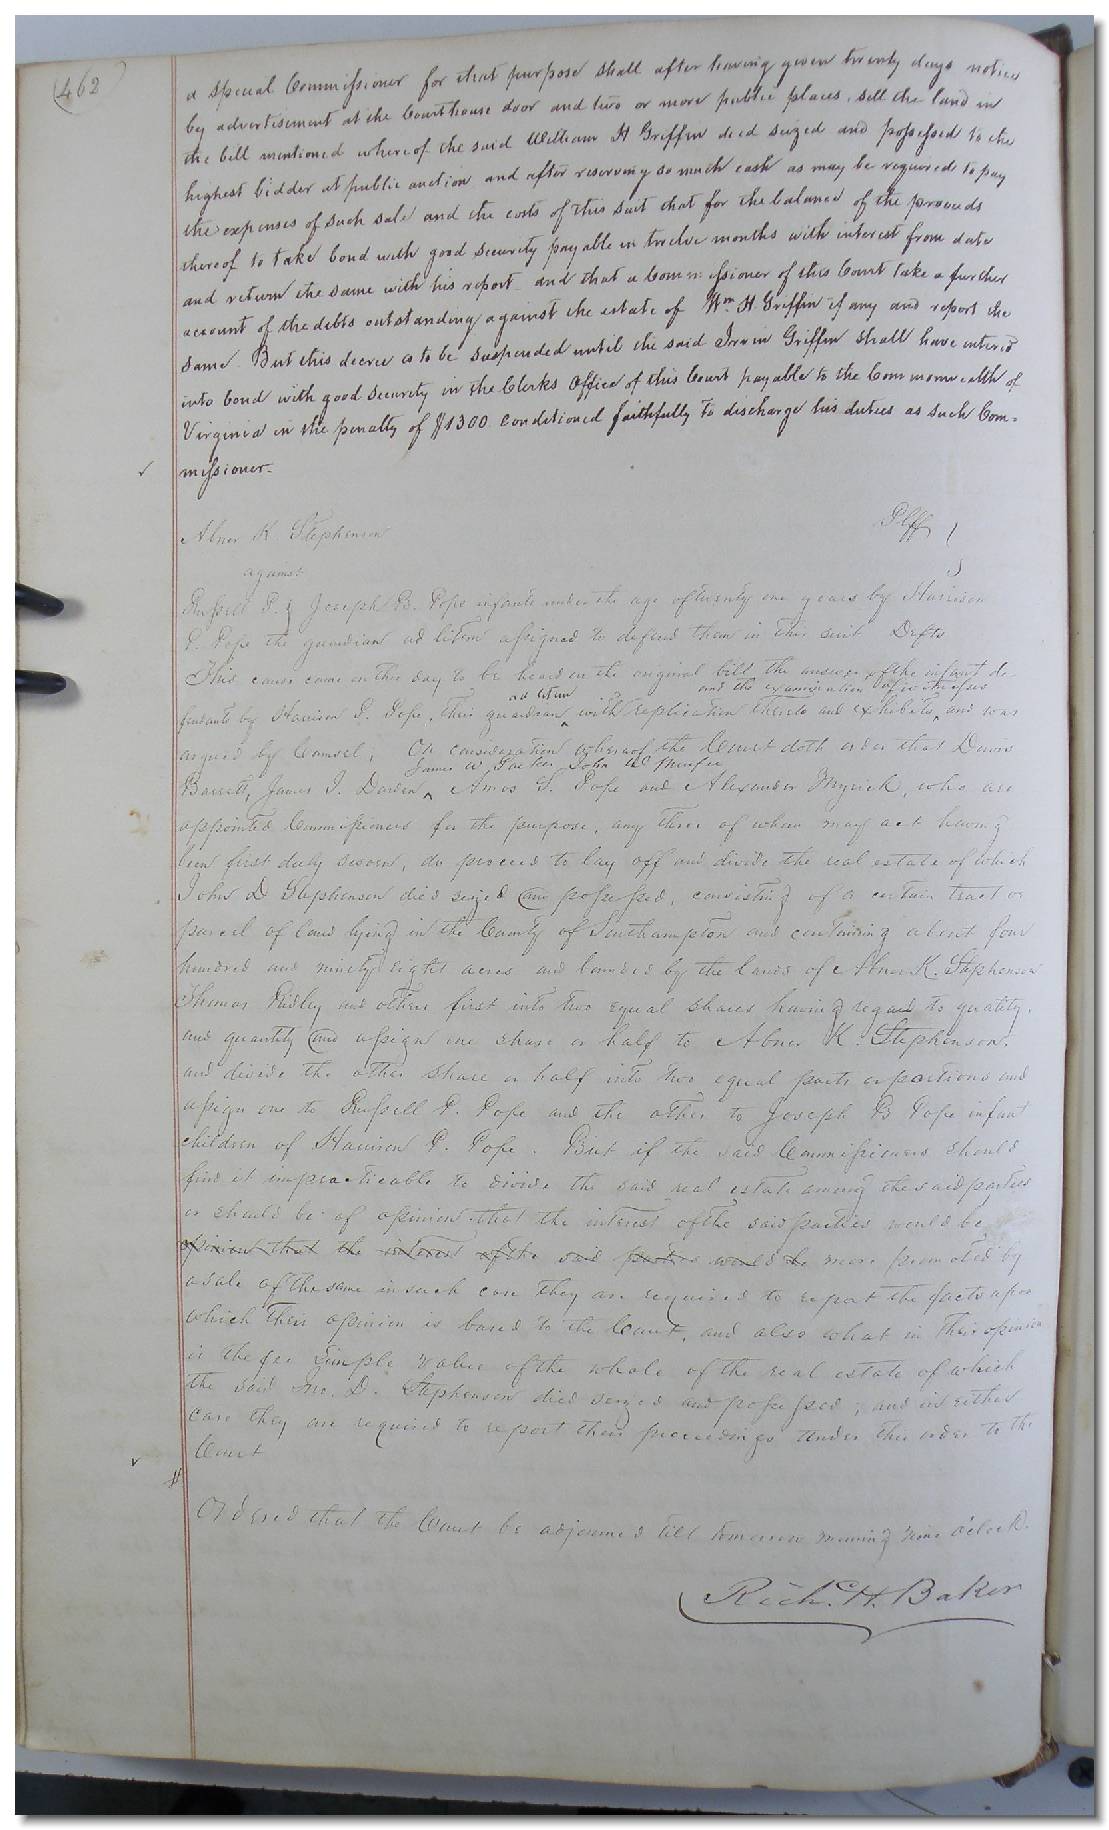 (462)
a special Commissioner for that purpose shall after having given twenty days notice
by advertisement at the Courthouse door and two or more public places, sell the land in
the bill mentioned whereof the said William H Griffin died seized and possessed to the
highest bidder at public auction and after reserving so much cash as may be required to pay
the expenses of such sale and the costs of this suit that for the balance of the proceeds
thereof to take bond with good security payable in twelve months with interest from date
and return the same with his report and that a Commissioner of this Court take a further
account of the debts outstanding against the estate of Wm. H. Griffin if any and report the
same. But this decree is to be suspended until the said Irwin Griffin shall have entered
into bond with good security in the Clerks Office of this Court payable to the Commonwealth of
Virginia in the penalty of $1300 conditioned faithfully to discharge his duties as such Com=
missioner.
Abner K Stephenson Plff
against
Russell P. & Joseph B. Pope infants under the age of twenty one years by Harrison
P. Pope the guardian ad litem assigned to defend them in this suit Defts
This cause came on this day to be heard on the original bill the answer of the infant de-
ad litem and the examination of witnesses
fendants by Harrison P. Pope, their guardian with replication thereto and exhibits, and was
argued by Counsel; On consideration whereof the Court doth order that
James W John W
Barrett, James I. Darden Amos S. Pope and Alexander Myrick, who are
appointed Commissioners for the purpose, any three of whom may act having
been first duly sworn, do proceed to lay off and divide the real estate of which
John D Stephenson died seized and possessed, consisting of a certain tract or
parcel of land lying in the County of Southampton and containing about four
hundred and ninety eight acres and bounded by the lands of Abner K. Stephenson
Thomas Ridley and others first into two equal shares having regard to quality
and quantity and assign one share or half to Abner K. Stephenson.
and divide the other share or half into two equal parts or portions and
assign one to Russell P. Pope and the other to Joseph B Pope infant
children of Harrison P. Pope. But if the said Commissioners should
find it impracticable to divide the said real estate among the said parties
or should be of opinion that the interest of the said parties would be
opinion that the interest of the said parties would be more promoted by
a sale of the same in such case they are required to report the facts upon
which their opinion is based to the Court, and also what in their opinion
is the fee simple value of the whole of the real estate of which
the said Jno. D. Stephenson died seized and possessed; and in either
case they are required to report their proceedings under this order to the
Court
Ordered that the Court be adjourned till tomorrow morning nine o'clock.
Rich. H. Baker